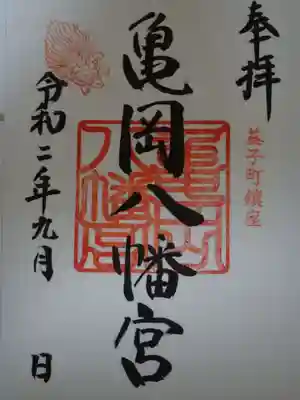 奉拝
益子町鎮座
亀岡八幡宮
亀岡八幡宮
令和二年九月　日